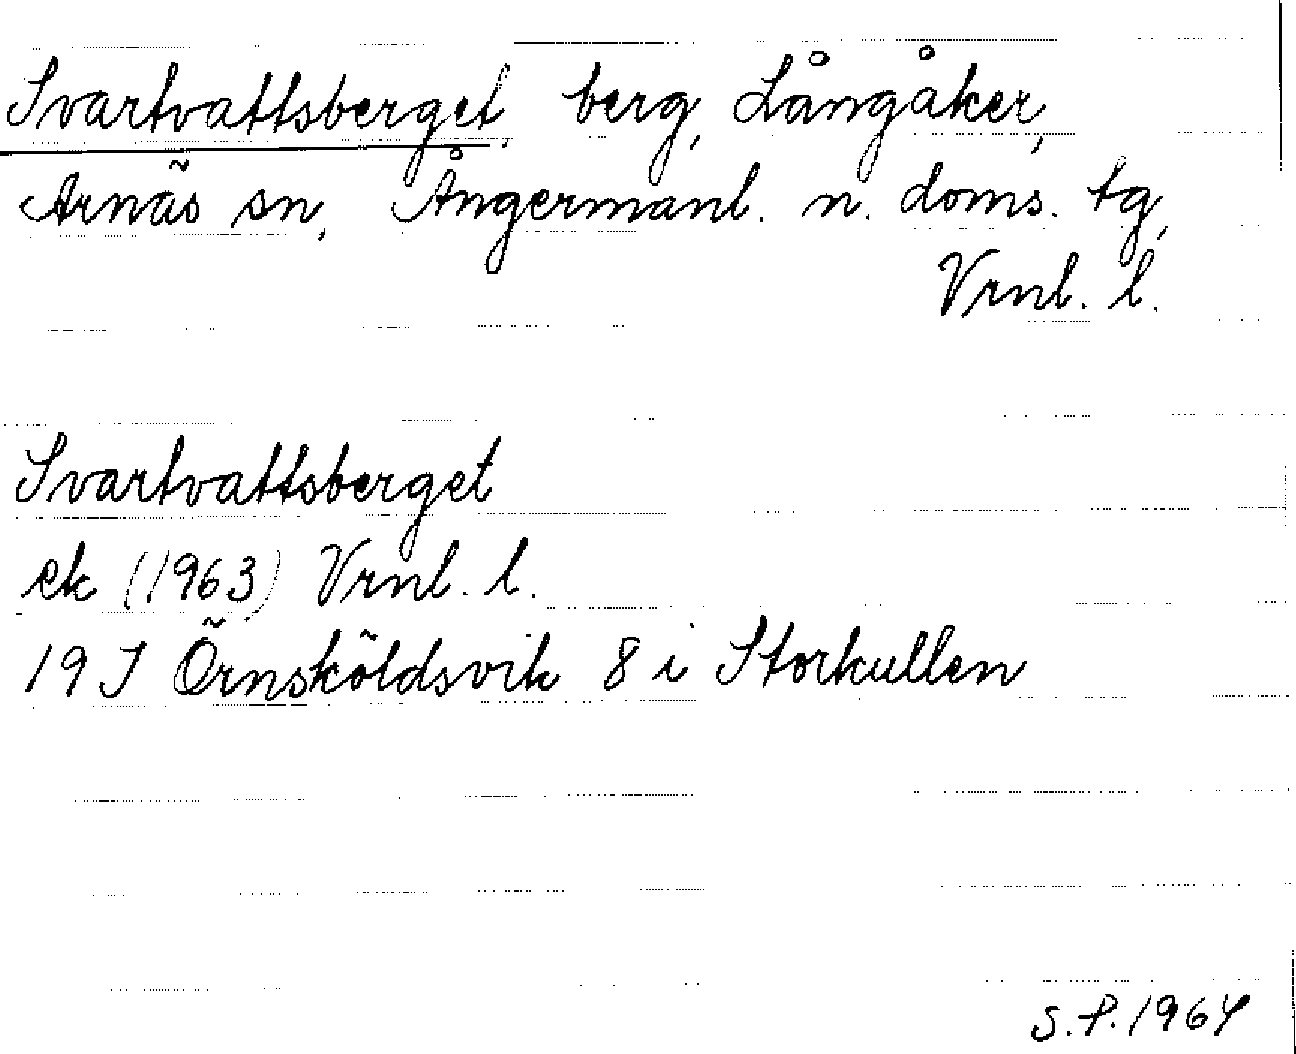 Svartvattsberget, berg, Långåker,
Arnäs sn, Ångermanl. n. doms. tg,
Vrnl. l.
Svartvattsberget
ek (1963) Vrnl. l.
19 J Örnsköldsvik 8 i Storkullen
S.P. 1964